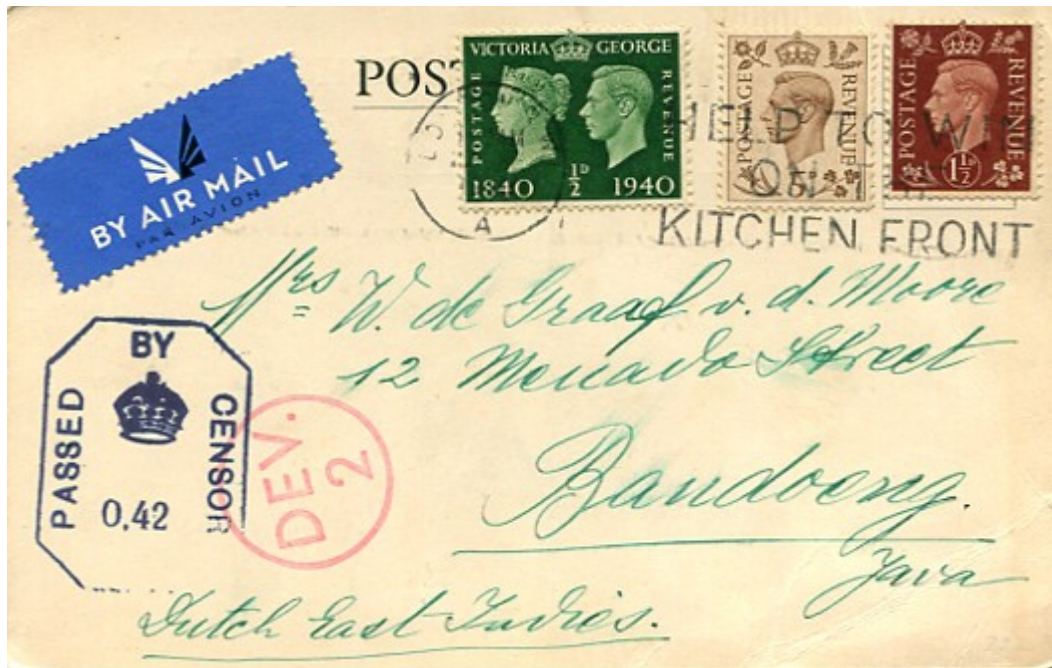 POST
VICTORIA GEORGE
POSTAGE
REVENUE
1840 ½D 1940
POSTAGE REVENUE
POSTAGE REVENUE
1½D
HELP TO WIN
ON
KITCHEN FRONT
A
BY AIR MAIL
PAR AVION
Mrs W. de Graaf v. d. Moore
12 Menado Street
Bandoeng.
Java
Dutch East Indies.
PASSED BY CENSOR
0.42
DEV.
2